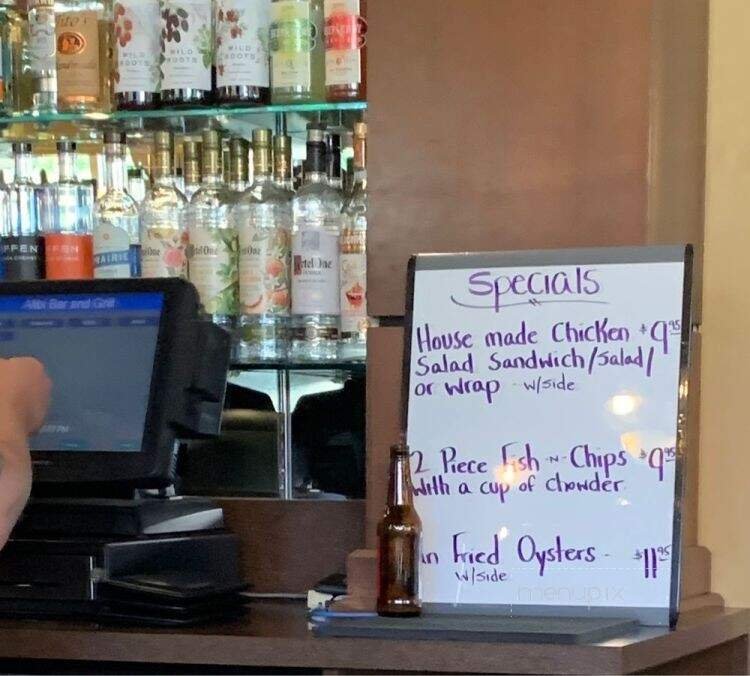 Tito's
WILD ROOTS
WILD ROOTS
WILD ROOTS
Ketel One
Alibi Bar and Grill
Specials
House made Chicken $9.95
Salad Sandwich/Salad/
or Wrap - w/side
2 Piece Fish -N- Chips $9.95
With a cup of chowder
Fried Oysters - $11.95
w/side
menupix